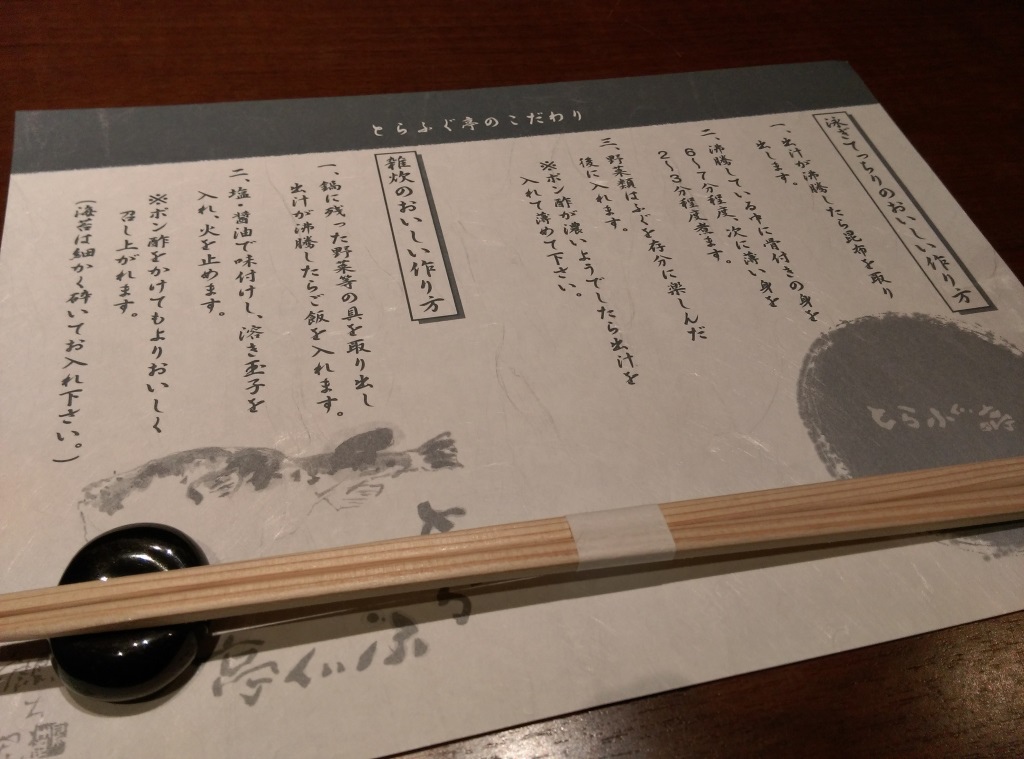 とらふぐ亭のこだわり
泳ぎてっちりのおいしい作り方
一、出汁が沸騰したら昆布を取り
出します。
二、沸騰している中に骨付きの身を
6～7分程度、次に薄い身を
2～3分程度煮ます。
三、野菜類はふぐを存分に楽しんだ
後に入れます。
※ポン酢が濃いようでしたら出汁を
入れて薄めて下さい。
雑炊のおいしい作り方
一、鍋に残った野菜等の具を取り出し
出汁が沸騰したらご飯を入れます。
二、塩・醤油で味付けし、溶き玉子を
入れ、火を止めます。
※ポン酢をかけてもよりおいしく
召し上がれます。
(海苔は細かく砕いてお入れ下さい。)
とらふぐ亭
ふぐ亭